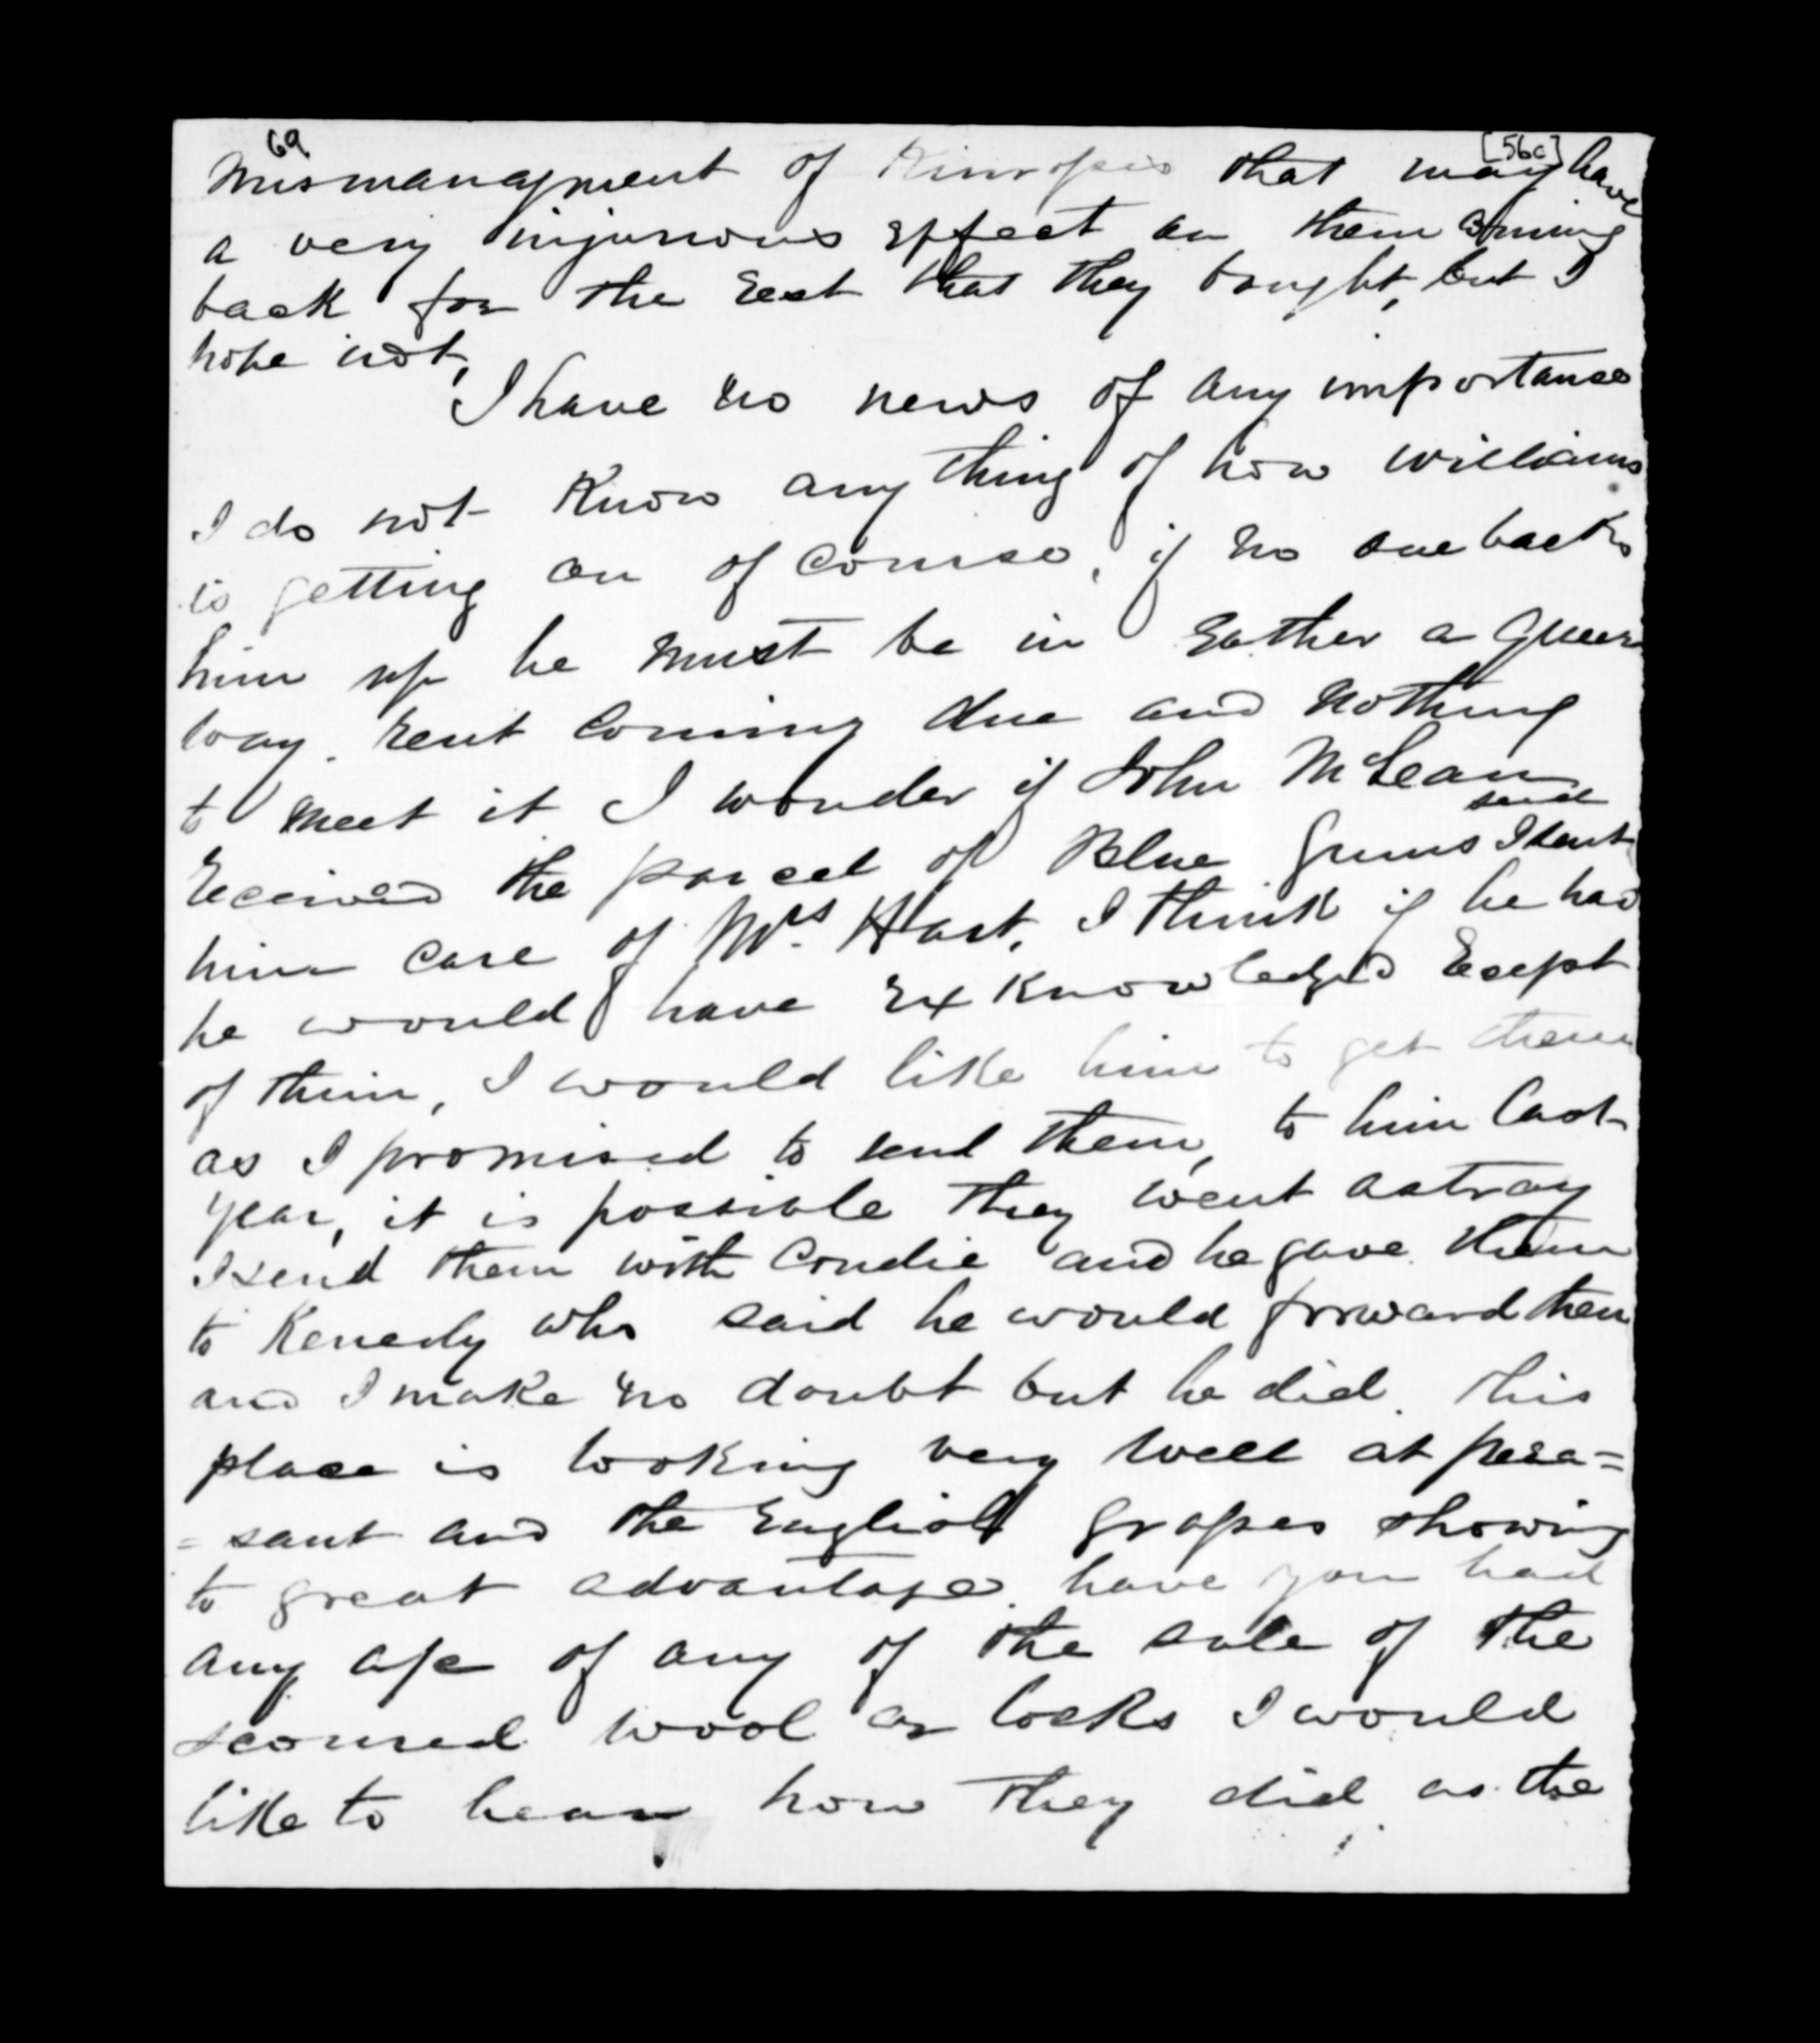 69
[56c]
Mismanagment of that may have
a very injurious effect on them coming
back for the rest that they bought, but I
hope not,
I have no news of any importance
I do not know any thing of how Williams
is getting on of course, if no one backs
him up he must be in rather a queer
way. rent coming due and nothing
to meet it I wonder if John McLean
received the parcel of Blue Gums seed I sent
him care of Mrs Hart, I think if he had
he would have exknowledged recept
of them, I would like him to get them
as I promised to send them, to him last
year, it is possible they went astray
I send them with Condie and he gave them
to Kenedy who said he would forward them
and I make no doubt but he did. This
place is looking very well at prea=
=sant and the English grapes showing
to great advantage. have you had
any a/c of any of the sale of the
scoured wool or locks I would
like to hear how they did, as the